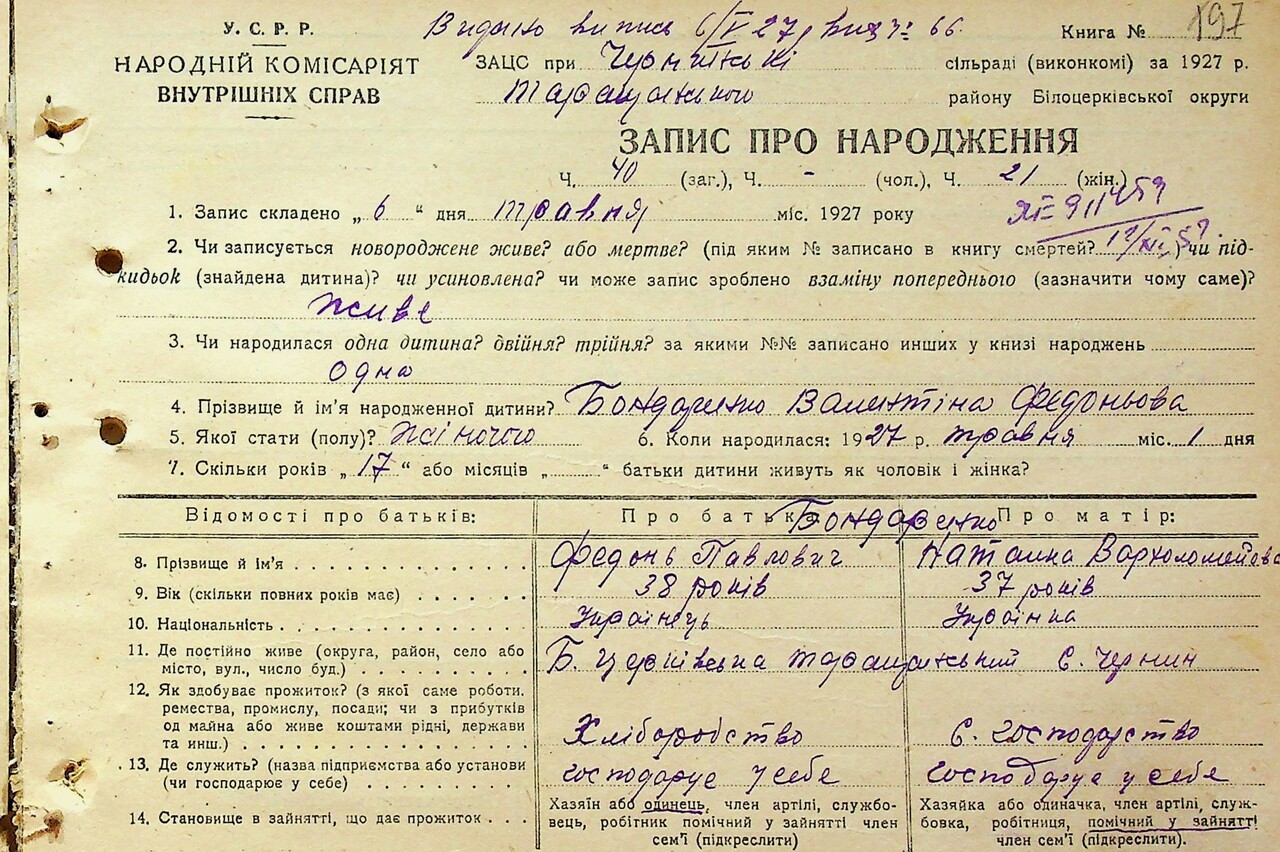 У. С. Р. Р.
НАРОДНІЙ КОМІСАРІЯТ
ВНУТРІШНІХ СПРАВ
Видано випись 6/V 27 р. вих № 66
Книга № 197
ЗАЦС при сільраді (виконкомі) за 1927 р.
Таращанського району Білоцерківської округи
ЗАПИС ПРО НАРОДЖЕННЯ
Ч. 40 (заг.), Ч. - (чол.), Ч. 21 (жін.)
1. Запис складено „ 6 “ дня травня міс. 1927 року
2. Чи записується новороджене живе? або мертве? (під яким № записано в книгу смертей? ) чи під-
кидьок (знайдена дитина)? чи усиновлена? чи може запис зроблено взаміну попереднього (зазначити чому саме)?
живе
3. Чи народилася одна дитина? двійня? трійня? за якими №№ записано инших у книзі народжень
Одна
4. Прізвище й ім'я народженної дитини? Бондаренко Валентіна Федоньова
5. Якої стати (полу)? Жіночого 6. Коли народилась: 1927 р. травня міс. 1 дня
7. Скільки років „ 17 “ або місяців „ “ батьки дитини живуть як чоловік і жінка?
Відомості про батьків: Про батька Про матір:
Бондаренко
8. Прізвище й ім'я Федонь Павлович Наталка Вархоломейова
9. Вік (скільки повних років має) 38 років 37 років
10. Національність Українець Українка
11. Де постійно живе (округа, район, село або
місто, вул., число буд.) Б. Церківська Таращанський с. Чернин
12. Як здобуває прожиток? (з якої саме роботи.
ремества, промислу, посади; чи з прибутков
од майна або живе коштами рідні, держави
та инш.) Хліборобство С. господарство
13. Де служить? (назва підприємства або установи
(чи господарює у себе) господарує у себе господарує у себе
14. Становище в зайнятті, що дає прожиток
Хазяїн або одинець, член артілі, службо-
вець, робітник помічний у зайнятті член
сем'ї (підкреслити)
Хазяйка або одиначка, член артілі, служ-
бовка, робітниця, помічний у зайнятті
член сем'ї (підкреслити).